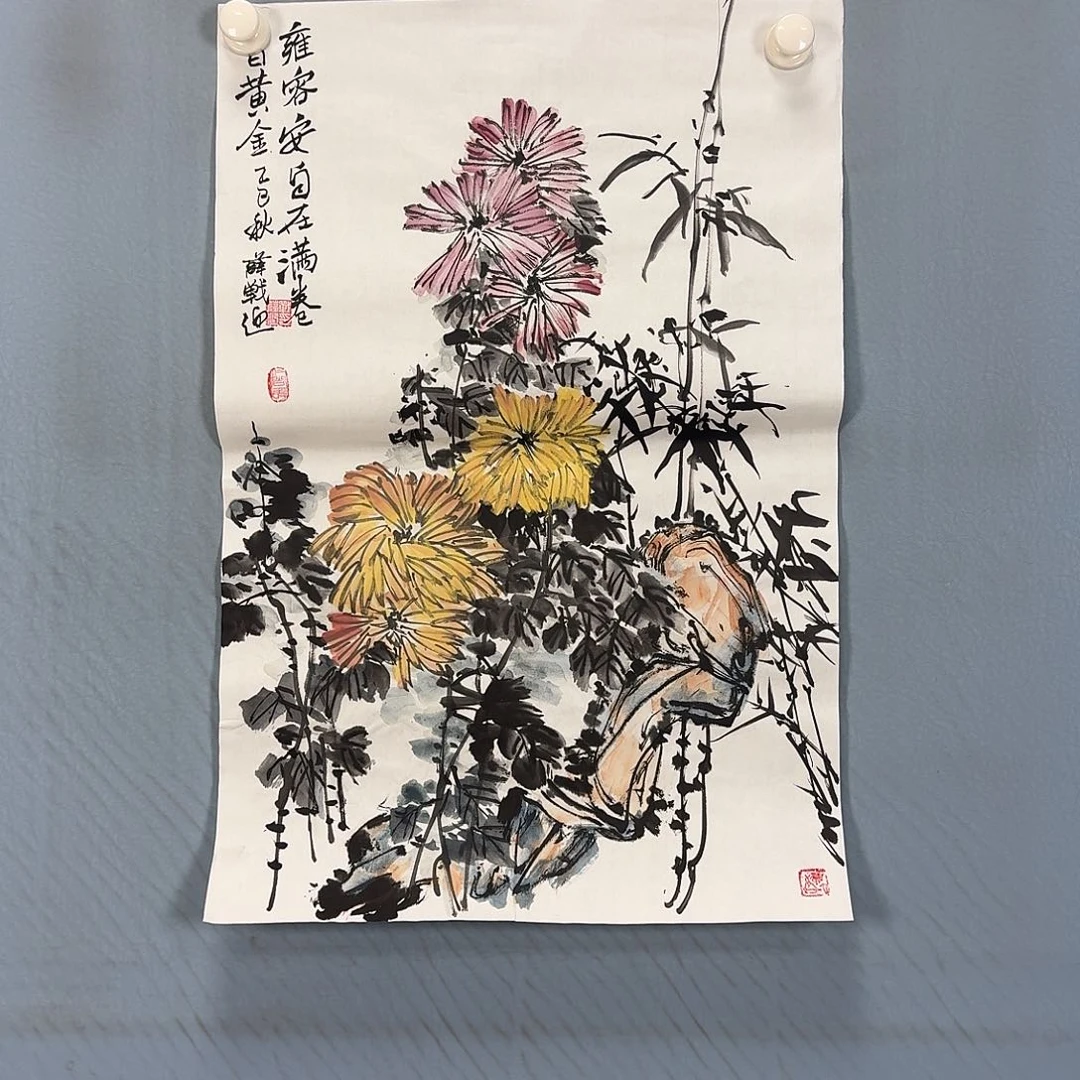 雍容安自在满卷
黄金 乙巳秋 薛戦迎